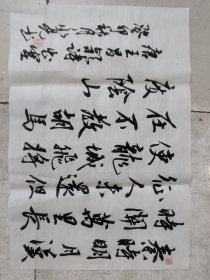 秦時明月漢
時關萬里長
征人未還但
使龍城飛將
在不教胡馬
度陰山
唐王昌齡詩出塞
癸卯秋月